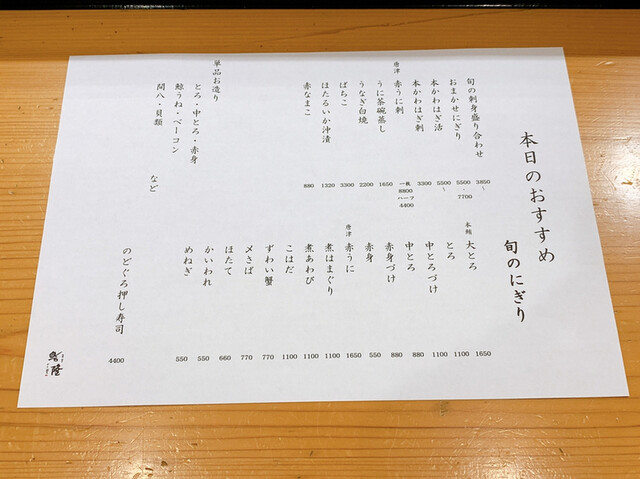 本日のおすすめ
旬の刺身盛り合わせ 3850〜
おまかせにぎり 5500・7700
本かわはぎ活 5500〜
本かわはぎ刺 3300
唐津 赤うに刺 一枚 8800 ハーフ 4400
うに茶碗蒸し 1650
うなぎ白焼 2200
ばちこ 3300
ほたるいか沖漬 1320
赤なまこ 880
単品お造り
とろ・中とろ・赤身
鯨うね・ベーコン
間八・貝類
など
旬のにぎり
本鮪 大とろ 1650
とろ 1100
中とろづけ 1100
中とろ 880
赤身づけ 880
赤身 550
唐津 赤うに 1650
煮はまぐり 1100
煮あわび 1100
こはだ 1100
ずわい蟹 770
〆さば 770
ほたて 660
かいわれ 550
めねぎ 550
のどぐろ押し寿司 4400